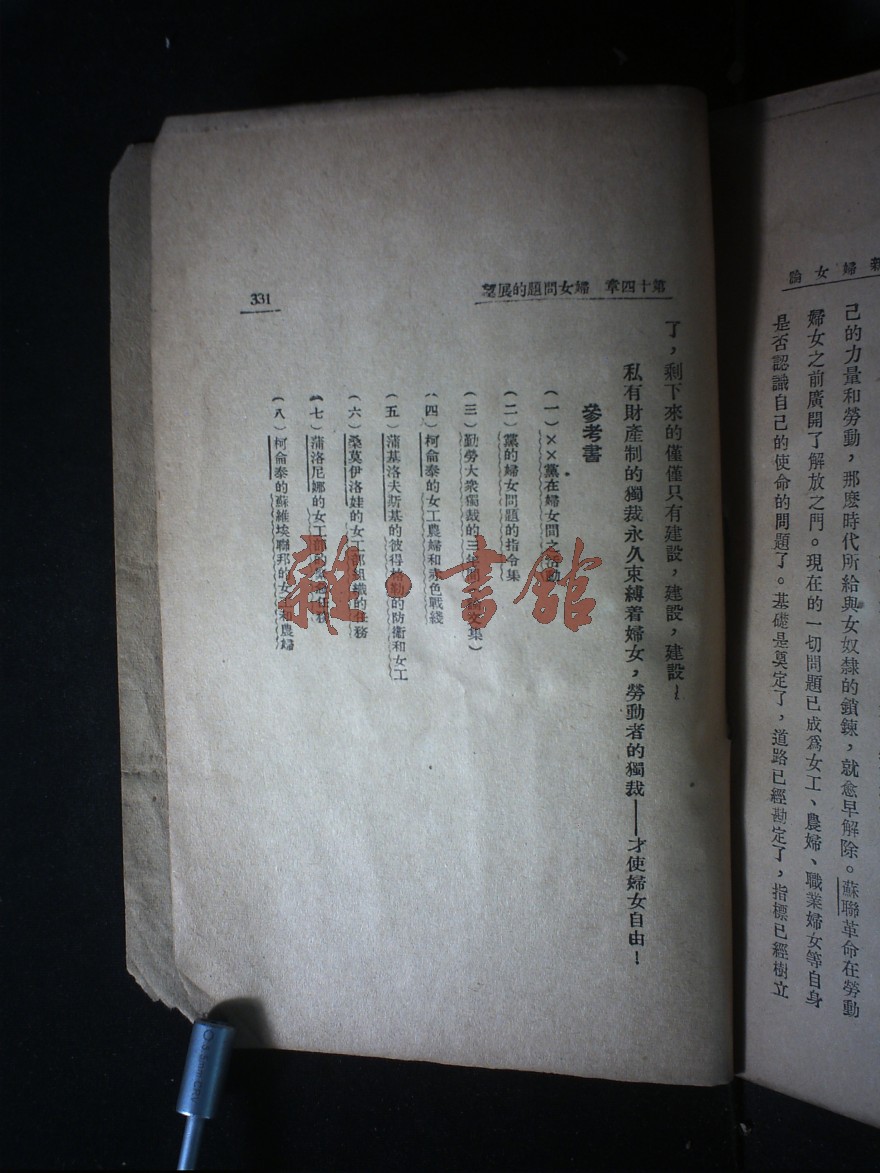 新婦女論
己的力量和勞動，那麽時代所給與女奴隸的鎖鍊，就愈早解除。蘇聯革命在勞動
婦女之前廣開了解放之門。現在的一切問題已成爲女工、農婦、職業婦女等自身
是否認識自己的使命的問題了。基礎是奠定了，道路已經勘定了，指標已經樹立
第十四章 婦女問題的展望
331
了，剩下來的僅僅只有建設，建設，建設！
私有財產制的獨裁永久束縛着婦女，勞動者的獨裁——才使婦女自由！
參考書
(一)××黨在婦女間之活動
(二)黨的婦女問題的指令集
(三)勤勞大衆獨裁的三年間(論文集)
(四)柯侖泰的女工農婦和赤色戰綫
(五)蒲基洛夫斯基的彼得格勒的防衛和女工
(六)桑莫伊洛娃的女工部組織的任務
(七)蒲洛尼娜的女工部的任務
(八)柯侖泰的蘇維埃聯邦的女工和農婦
雜·書館